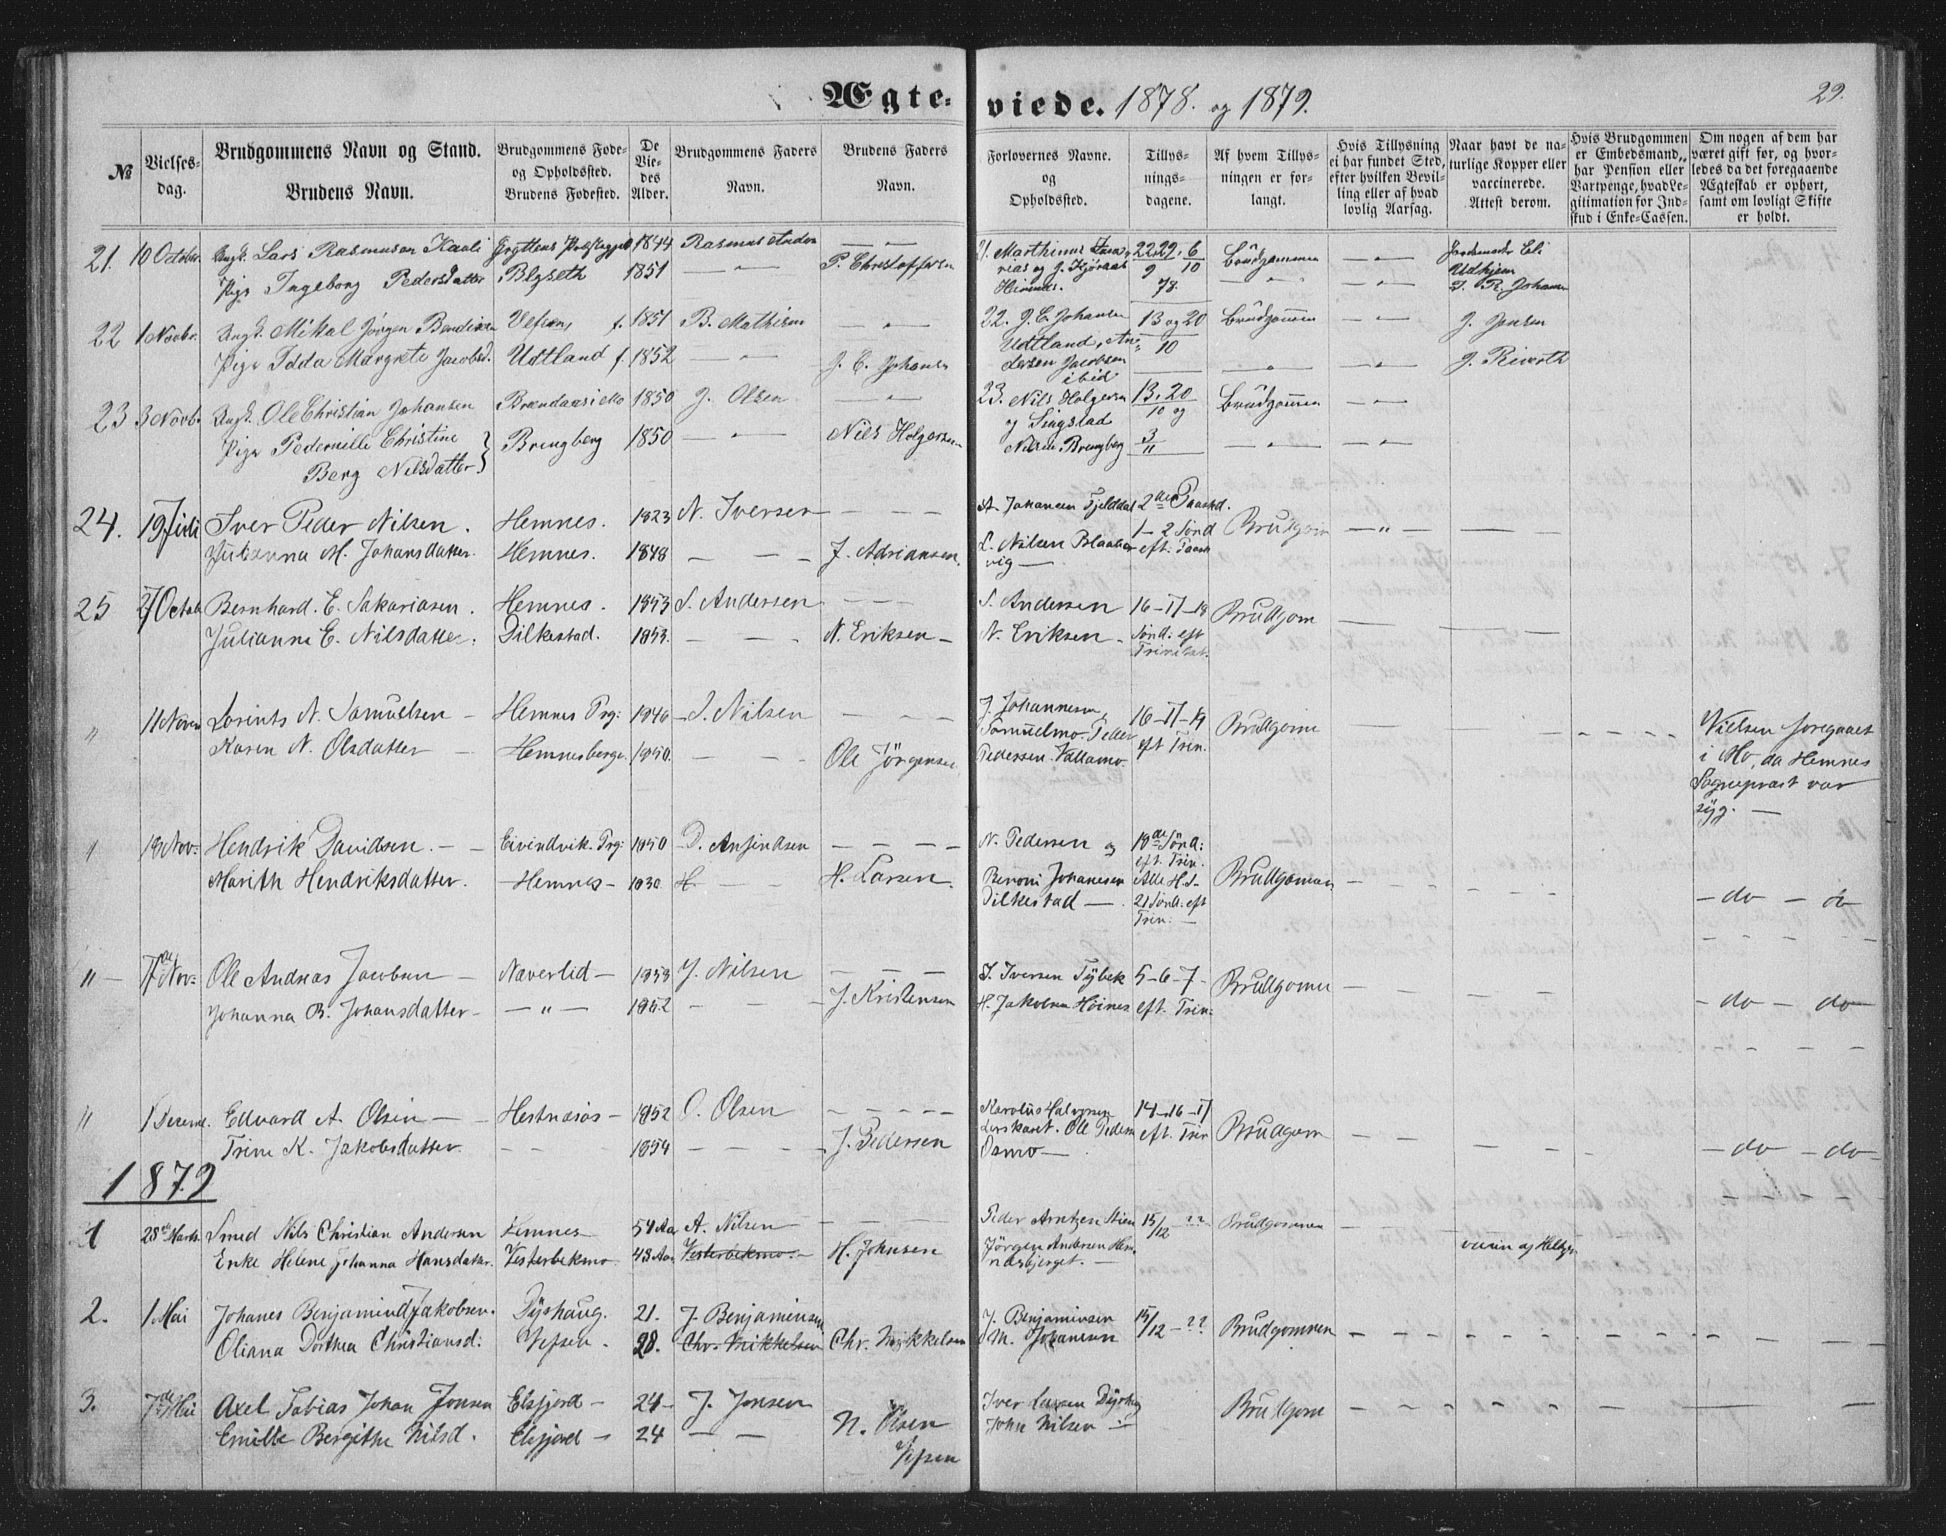 Ægteviede. 1878. og 1879.
29.
№
Vielsesdag.
Brudgommens Navn og Stand.
Brudens Navn.
Brudgommens Føde- og Opholdssted.
Brudens Fødested.
De Viedes Alder.
Brudgommens Faders Navn.
Brudens Faders Navn.
Forlovernes Navne. og Opholdssted.
Tillysningsdagene.
Af hvem Tillysningen er forlangt.
Hvis Tillysning ei har fundet Sted, efter hvilken Bevilling eller af hvad lovlig Aarsag.
Naar havt de naturlige Kopper eller vaccinerede. Attest derom.
Hvis Brudgommen er Embedsmand, har Pension eller Vartpenge, hvad Legitimation for Indskud i Enke-Cassen.
Om nogen af dem har været gift før, og hvorledes da det foregaaende Ægteskab er ophørt, samt om lovligt Skifte er holdt.
21. 10 Octobr. Ungk. Lars Rasmussen 1844 Rasmus 21. Marthinus 22. 29. 6 Brüdgommen
Pige Ingeborg Pedersdatter Blyseth 1851 P. Christoffersen 9 10
78.
22 1 Novbr. Ungk. Mikal Jørgen Bendixen Vefsen, f. 1851 B. Mathisen 22. J. C. Johansen 13 og 20 Brüdgommen J. Jensen
Pige Idda Margrete Jacobsd. Udtland f. 1852 J. C. Johansen Udtland, 10
Jacobsen ibid
23 3 Novbr. Ungk. Ole Christian Johansen 1850 J. Olsen 23. Nils Holgersen 13, 20 Brüdgommen
Pige Pedernille Christine Brengberg 1850 Nils Holgersen og Singstad 10 og
Berg Nilsdatter Nilsen Brengberg 3 11
24. 19 Juli Iver Peder Nilsen. Hemnes. 1823 N. Iversen A. Johansen Fjelddal 2den Paaskd. Brudgom
Julianna M. Johansdatter. Hemnes. 1848 J. Adriansen. L. Nilsen 1 - 2 Sønd eft. Paask
25 27 Octob Bernhard. E. Sakariasen. Hemnes. 1853 S. Andersen S. Andersen 16 - 17 - 18 Brudgom
Julianne E. Nilsdatter. Dilkestad. 1853. N. Eriksen N. Eriksen Sønd. eft Trinitat.
" 11 Novem Lorints N. Samuelsen Hemnes Prg: 1846 S. Nilsen J. Johannesen 16 - 17 - 19 Brudgome Vielsen foregaaet
Karen N. Olsdatter Hemnesberge. 1850. Ole Jörgensen Samuelmo. Peder eft Trin. i Mo, da Hemnes
Pedersen. Vallamo. Sognepræst var
syg.
" 18 Nov. Hendrik Davidsen. Eivendvik. Prg: 1850 D. N. Pedersen og 18de Sønd: eft. Trin.
Marith Hendriksdatter. Hemnes 1830 H. Larsen. Benoni Johanesen Alle H. d Brudgoman do
Dilkestad 21 Sønd. eft Trin.
" 17de Nov: Ole Andreas Jacobsen Naverlid 1853 J. Nilsen I. Iversen Tÿbek 5 - 6 - 7 Brudgome
Johanna B. Johansdatter " 1852 J. Kristensen H. Jakobsen Höines eft. Trin: do do
" 1 Decemb. Edvard A. Olsen Hestnæsøs 1852 O. Olsen Karolus Halvorsen 14 - 16 - 17 Brudgom
Trine K. Jakobsdatter 1854 J. Pedersen Leirskaret. Ole Pedersen eft. Trin
Osmo do do
1879
1 28de Marts. Smed Nils Christian Andersen Hemnes 54 Aar A. Nilsen Peder Arntzen Stien 15/12 - ?? Brudgommen
Enke Helene Johanna Hansdatter. Vesterbekmo 43 Aar Vesterbekmo. H. Johnsen Jørgen Andersen Hemnæsbjerget.
2. 1 Mai Johanes Benjamin Jakobsen. Dÿshaug. 21. J. Benjaminsen J. Benjaminsen 15/12 - ?? Brudgommen
Oliana Dorthea Christiansd: Vefsen. 28. Chr. Mikkelsen Chr. Mikkelsen M. Johansen
3. 7de Mai Axel Tobias Johan Jonsen Elsfjord 24 J. Jonsen Iver Larsen Brudgom
Emilie Bergithe Nilsd. Elsfjord 24 N. Olsen Vefsen John Nilsen